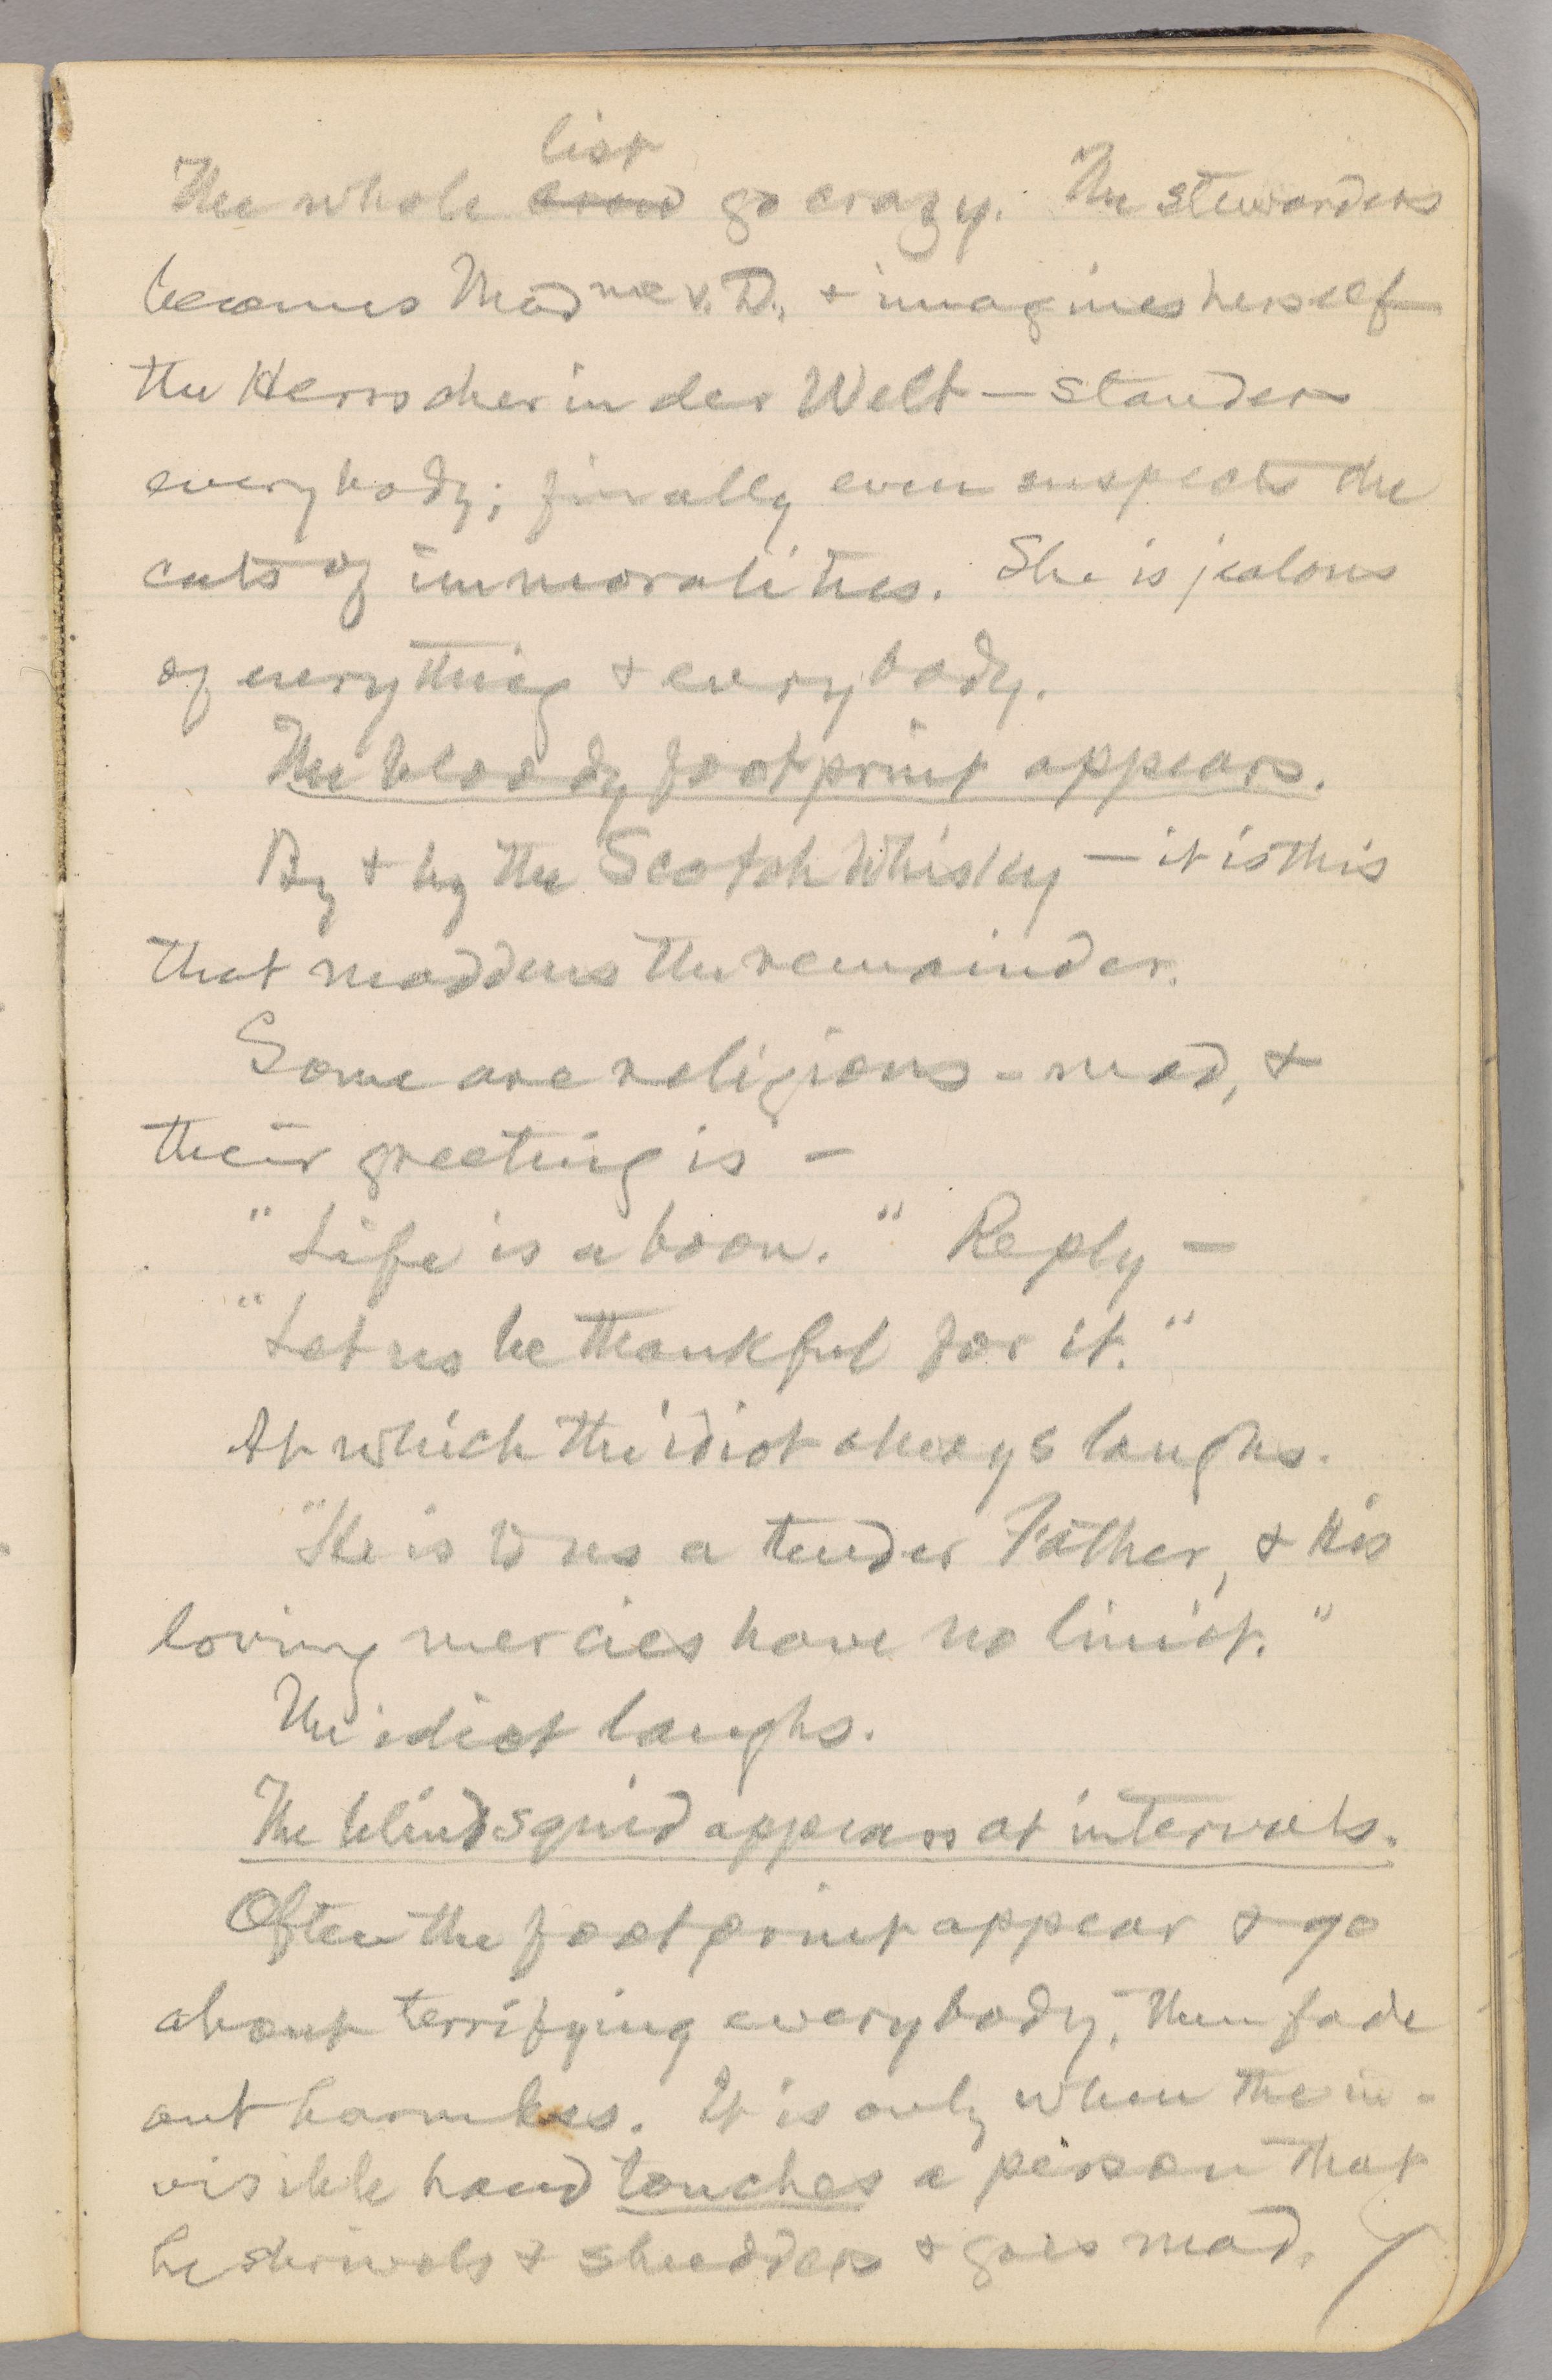 The whole list crew go crazy. The stewardess
becomes Madme v. D., & imagines herself
the Herrscherin der Welt — slanders
everybody; finally even suspects the
cats of immoralities. She is jealous
of everything & everybody.
The bloody footprint appears.
By & by the Scotch Whisky — it is this
that maddens the remainder.
Some are religious-mad, &
their greeting is —
"Life is a boon." Reply —
"Let us be thankful for it."
At which the idiot always laughs.
"He is to us a tender Father, & His
loving mercies have no limit."
The idiot laughs.
The blind squid appears at intervals.
Often the footprint appear & go
about terrifying everybody, then fade
out harmless. It is only when the in-
visible hand touches a person that
he shrivels & shudders & goes mad.